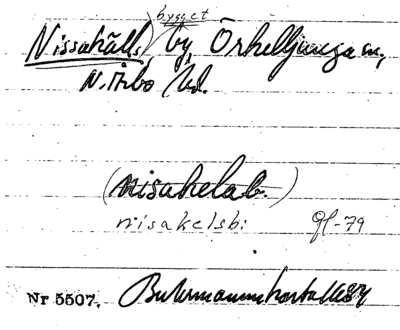 bygget
Nissahälls by, Örkelljunga sn,
N. Åsbo hd.
(nisahelab.)
nisakelsbi gl-79
Nr 5507. Buhrmannkartan 1684